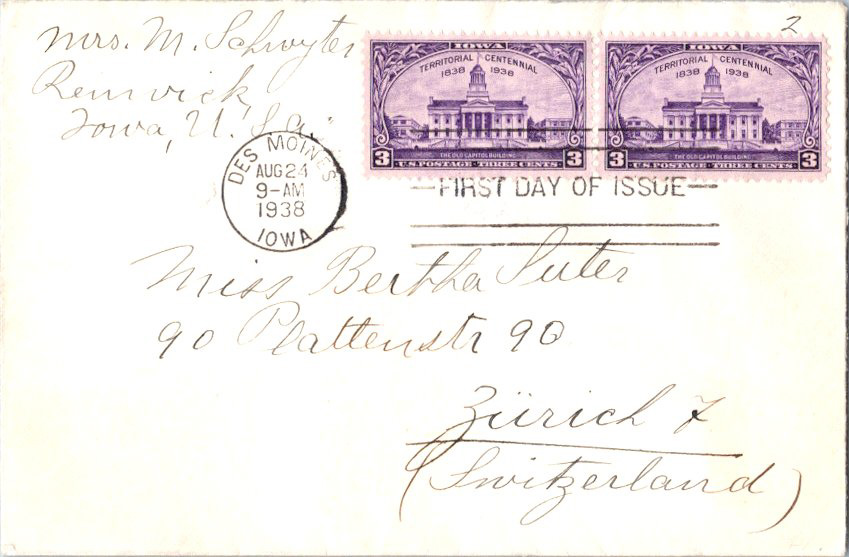 2
Mrs. M. Schwyter
Renwick
Iowa, U.S.A.
IOWA
TERRITORIAL CENTENNIAL
1838 1938
THE OLD CAPITOL BUILDING
3 3
U.S. POSTAGE THREE CENTS
IOWA
TERRITORIAL CENTENNIAL
1838 1938
THE OLD CAPITOL BUILDING
3 3
U.S. POSTAGE THREE CENTS
DES MOINES
AUG 24
9-AM
1938
IOWA
FIRST DAY OF ISSUE
Miss Bertha Suter
90 Plattenstr 90
Zürich 7
(Switzerland)